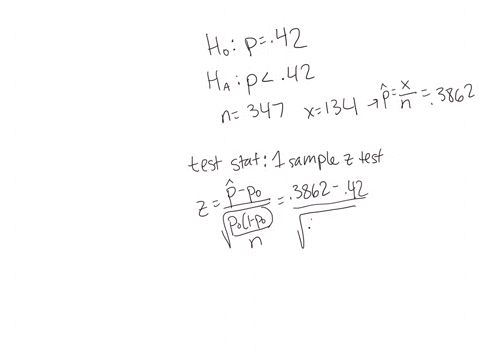 H₀: p=.42
H_A: p< .42
n= 347 x=134 → p̂ = x/n = .3862
test stat: 1 sample z test
z = (p̂ - p₀)/√(p₀(1-p₀)/n) = (.3862 - .42)/√